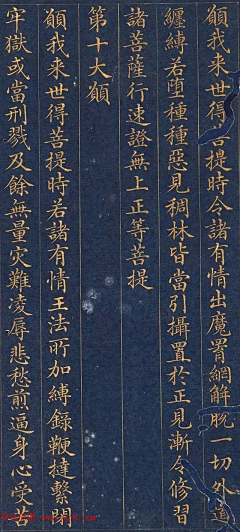 願我来世得菩提時令諸有情出魔罥網解脱一切外道
纏縛若堕種種惡見稠林皆當引攝置於正見漸令修習
諸菩薩行速證無上正等菩提
第十大願
願我来世得菩提時若諸有情王法所加縛錄鞭撻繫閉
牢獄或當刑戮及餘無量灾難凌辱悲愁煎逼身心受苦